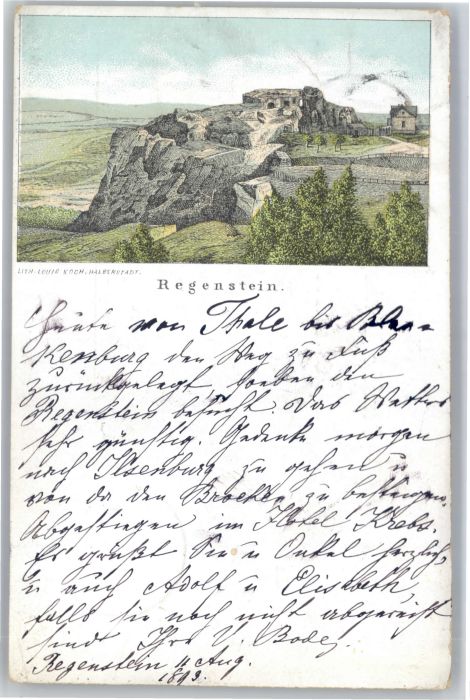 LITH. LOUIS KOCH, HALBERSTADT.
Regenstein.
Heute von Thale bis Blan=
kenburg den Weg zu Fuß
zurückgelegt, soeben den
Regenstein besucht. Das Wetter
sehr günstig. Gedenke morgen
nach Ilsenburg zu gehen u
von da den Brocken zu besteigen.
Abgestiegen im Hotel Krebs.
Es grüßt Sie u Onkel herzlich,
u auch Adolf u Elisabeth,
falls sie noch nicht abgereist
sind Ihr V. Bode
Regenstein 11 Aug.
1893.